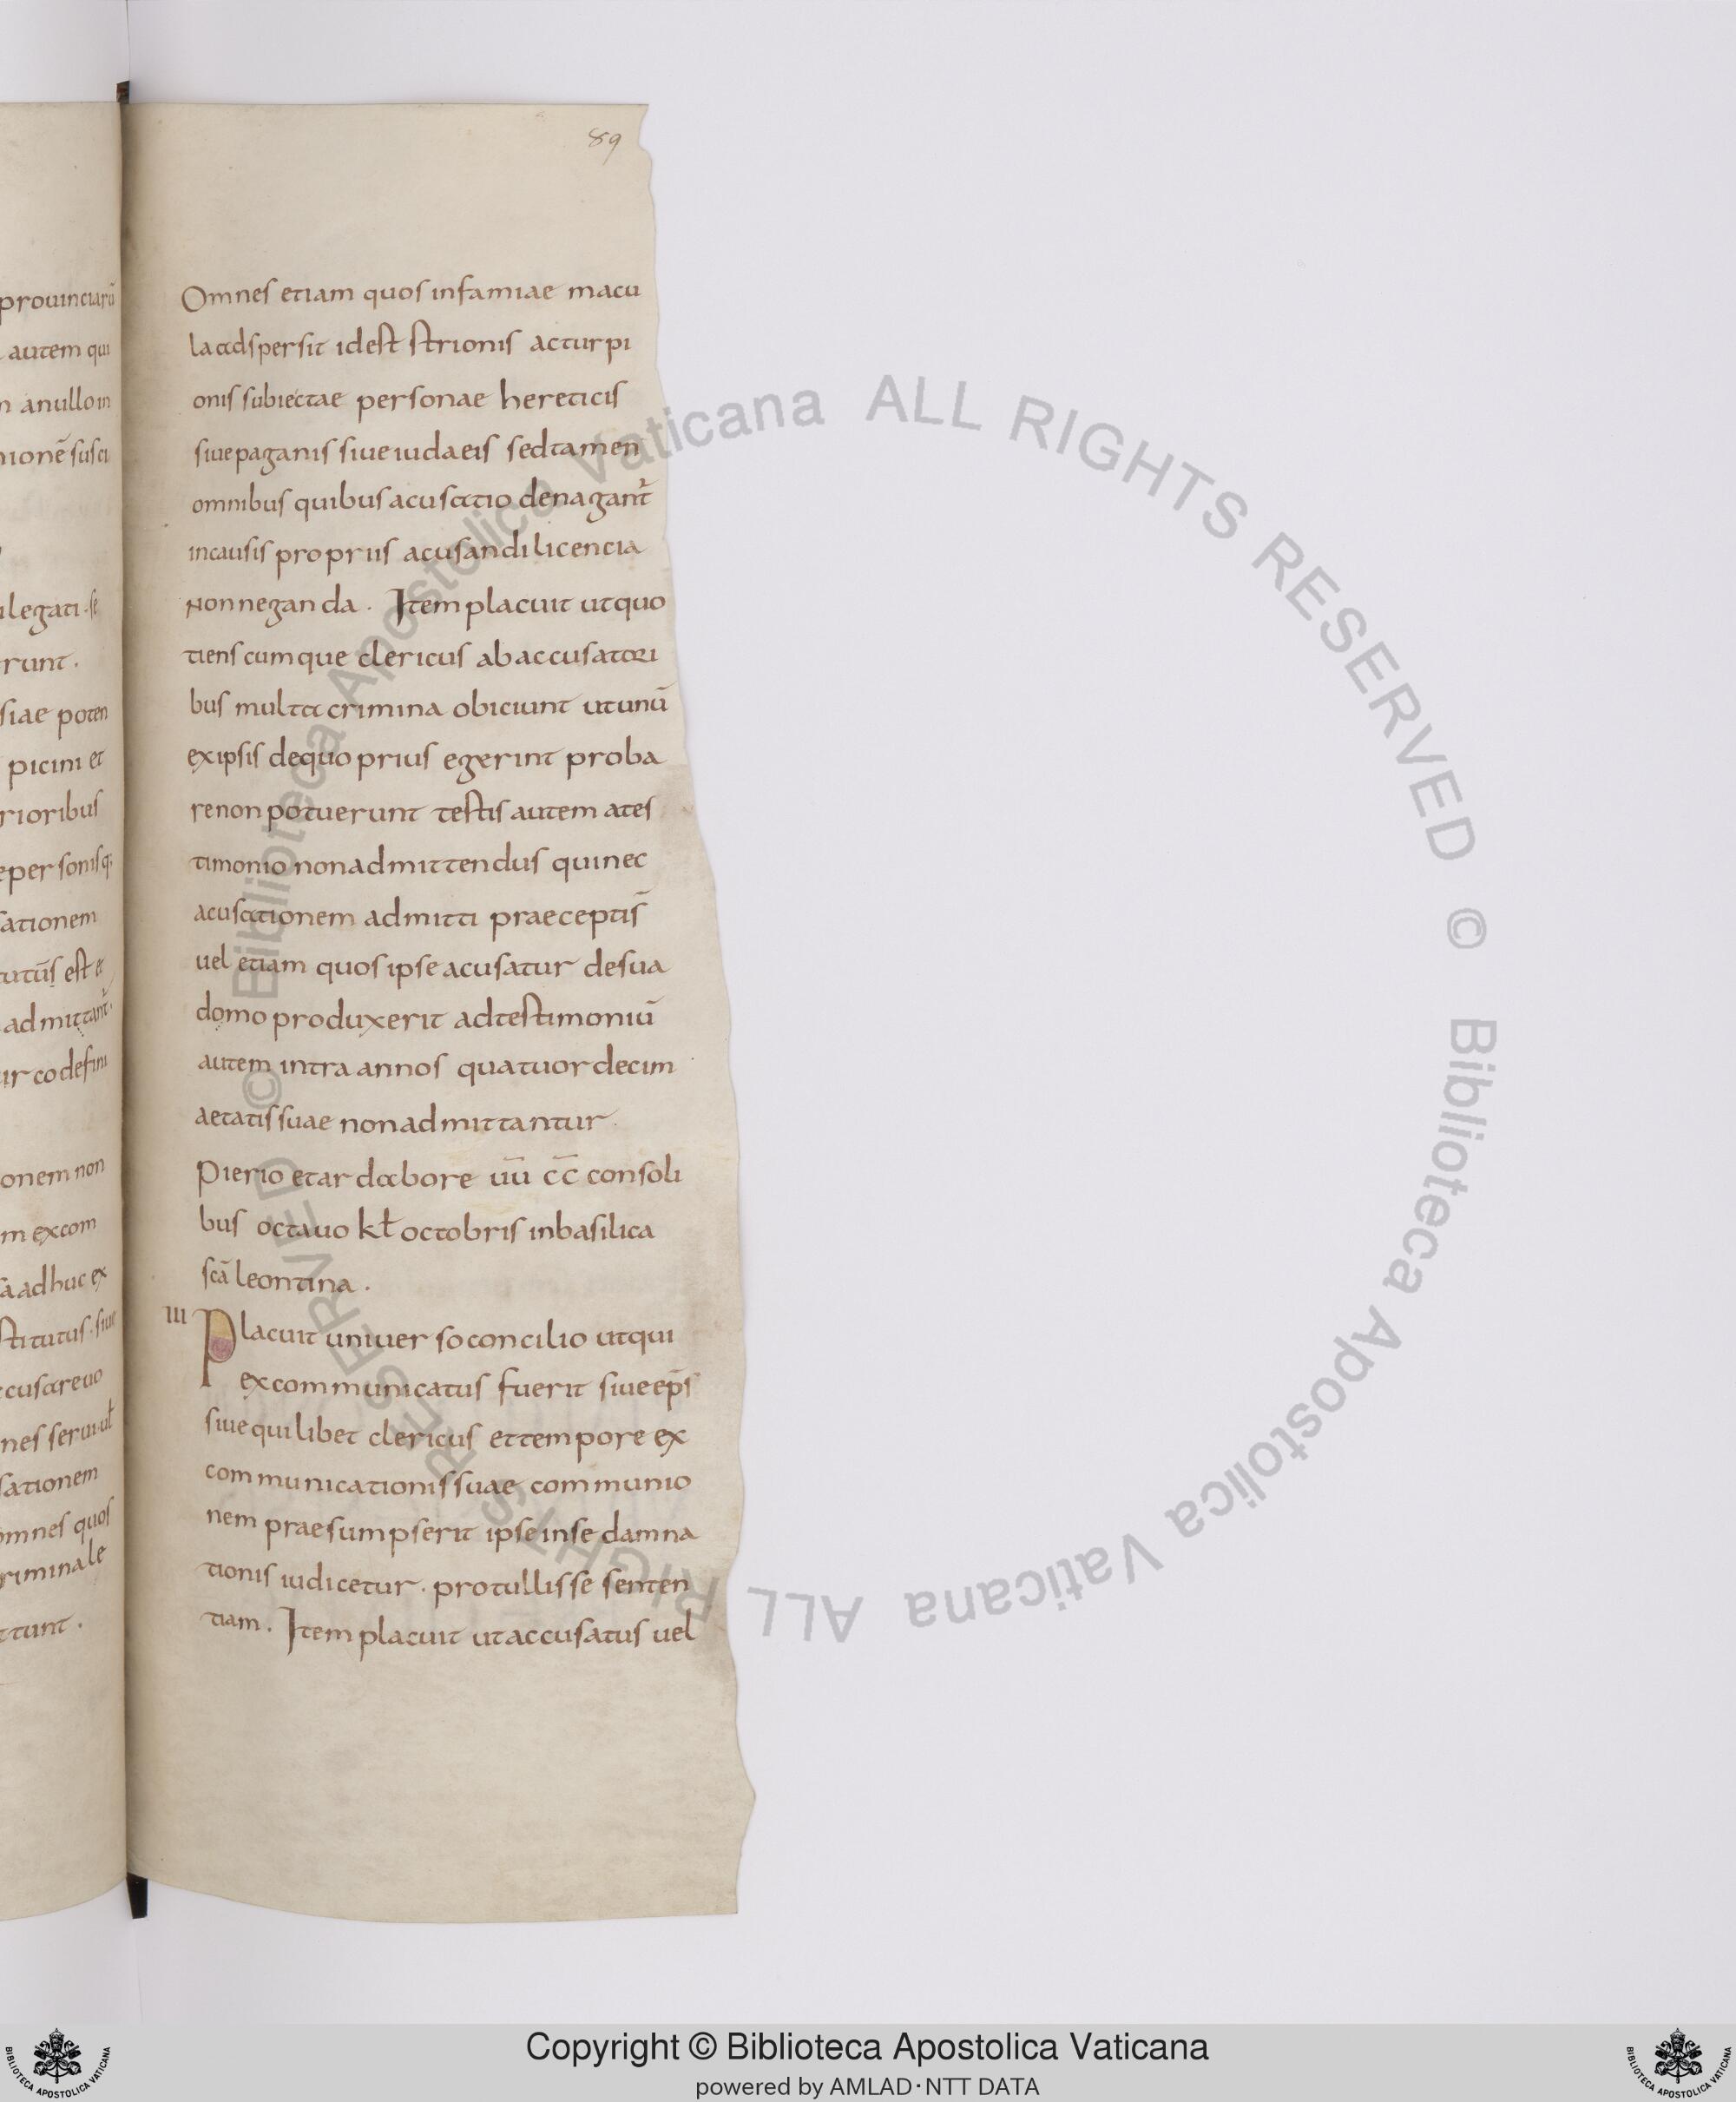 prouinciarū
autem qui
n anullo in
nionē susci
legati · se
runt .
siae poten
picini et
rioribus
e personis q;
sationem
est et
admittant᷑.
onem non
m excom
adhuc ex
stitutus · siue
cusare uo
nes serui ul
sationem
omnes quos
criminale
ttunt .
89
Omnes etiam quos infamiae macu
la adspersit id est strionis ac turpi
onis subiectae personae hereticis
siue paganis siue iudaeis sed tamen
omnibus quibus acusatio denagant᷑
in causis propriis acusandi licencia
non neganda . Item placuit ut quo
tiens cumque clericus ab accusatori
bus multa crimina obiciunt ut unū
ex ipsis de quo prius egerint proba
re non potuerunt testis autem ates
timonio non admittendus qui nec
acusationem admitti praeceptis̄
uel etiam quos ipse acusatur de sua
domo produxerit ad testimoniū
autem intra annos quatuordecim
aetatis suae non admittantur .
Pierio et ardabore ūū c̄c̄ consoli
bus octauo kł octobris in basilica
scā leontina .
III Placuit uniuerso concilio ut qui
excommunicatus fuerit siue ep̄s
siue quilibet clericus et tempore ex
communicationis suae communio
nem praesumpserit ipse in se damna
tionis iudicetur . protullisse senten
tiam . Item placuit ut accusatus uel
© Biblioteca Apostolica Vaticana ALL RIGHTS RESERVED © Biblioteca Apostolica Vaticana ALL RIGHTS RESERVED
Copyright © Biblioteca Apostolica Vaticana
powered by AMLAD·NTT DATA
BIBLIOTECA APOSTOLICA VATICANA
BIBLIOTECA APOSTOLICA VATICANA